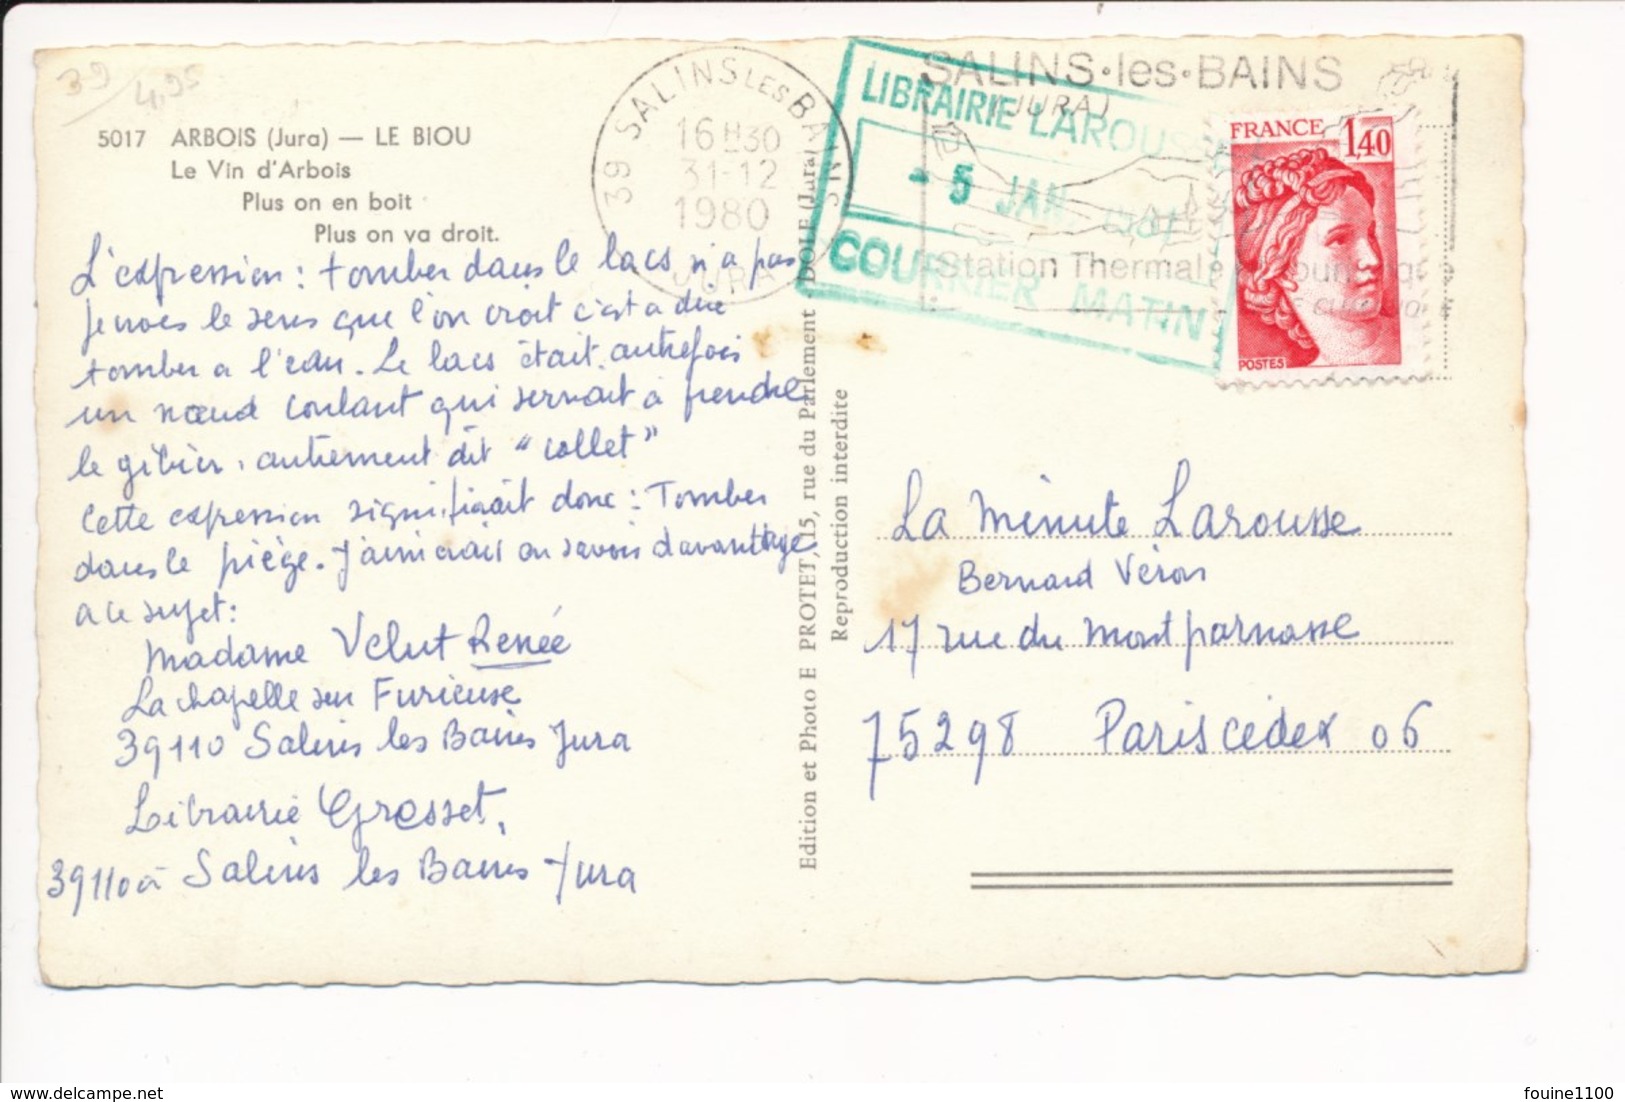 39
4,95
5017 ARBOIS (Jura) — LE BIOU
Le Vin d'Arbois
Plus on en boit
Plus on va droit.
L'expression : tomber dans le lacs n'a pas
le sens que l'on croit c'est a dire
tomber a l'eau. Le lacs était autrefois
un nœud coulant qui servait à prendre
le gibier, autrement dit "collet"
Cette expression signifiait donc : Tomber
dans le piège. J'aimerais en savoir davantage
a ce sujet :
Madame Velut Renée
La chapelle sur Furieuse
39110 Salins les Bains Jura
Librairie Grosset,
39110 à Salins les Bains Jura
39 SALINS LES BAINS
16H30
31-12
1980
JURA
LIBRAIRIE LAROUSSE
- 5 JAN 1981
COURRIER MATIN
SALINS·les·BAINS
(JURA)
Station Thermale
FRANCE 1,40
POSTES
Edition et Photo E PROTET, 115, rue du Parlement DOLE (Jura)
Reproduction interdite
La Minute Larousse
Bernard Véron
17 rue du Montparnasse
75298 Paris cédex 06
fouine1100